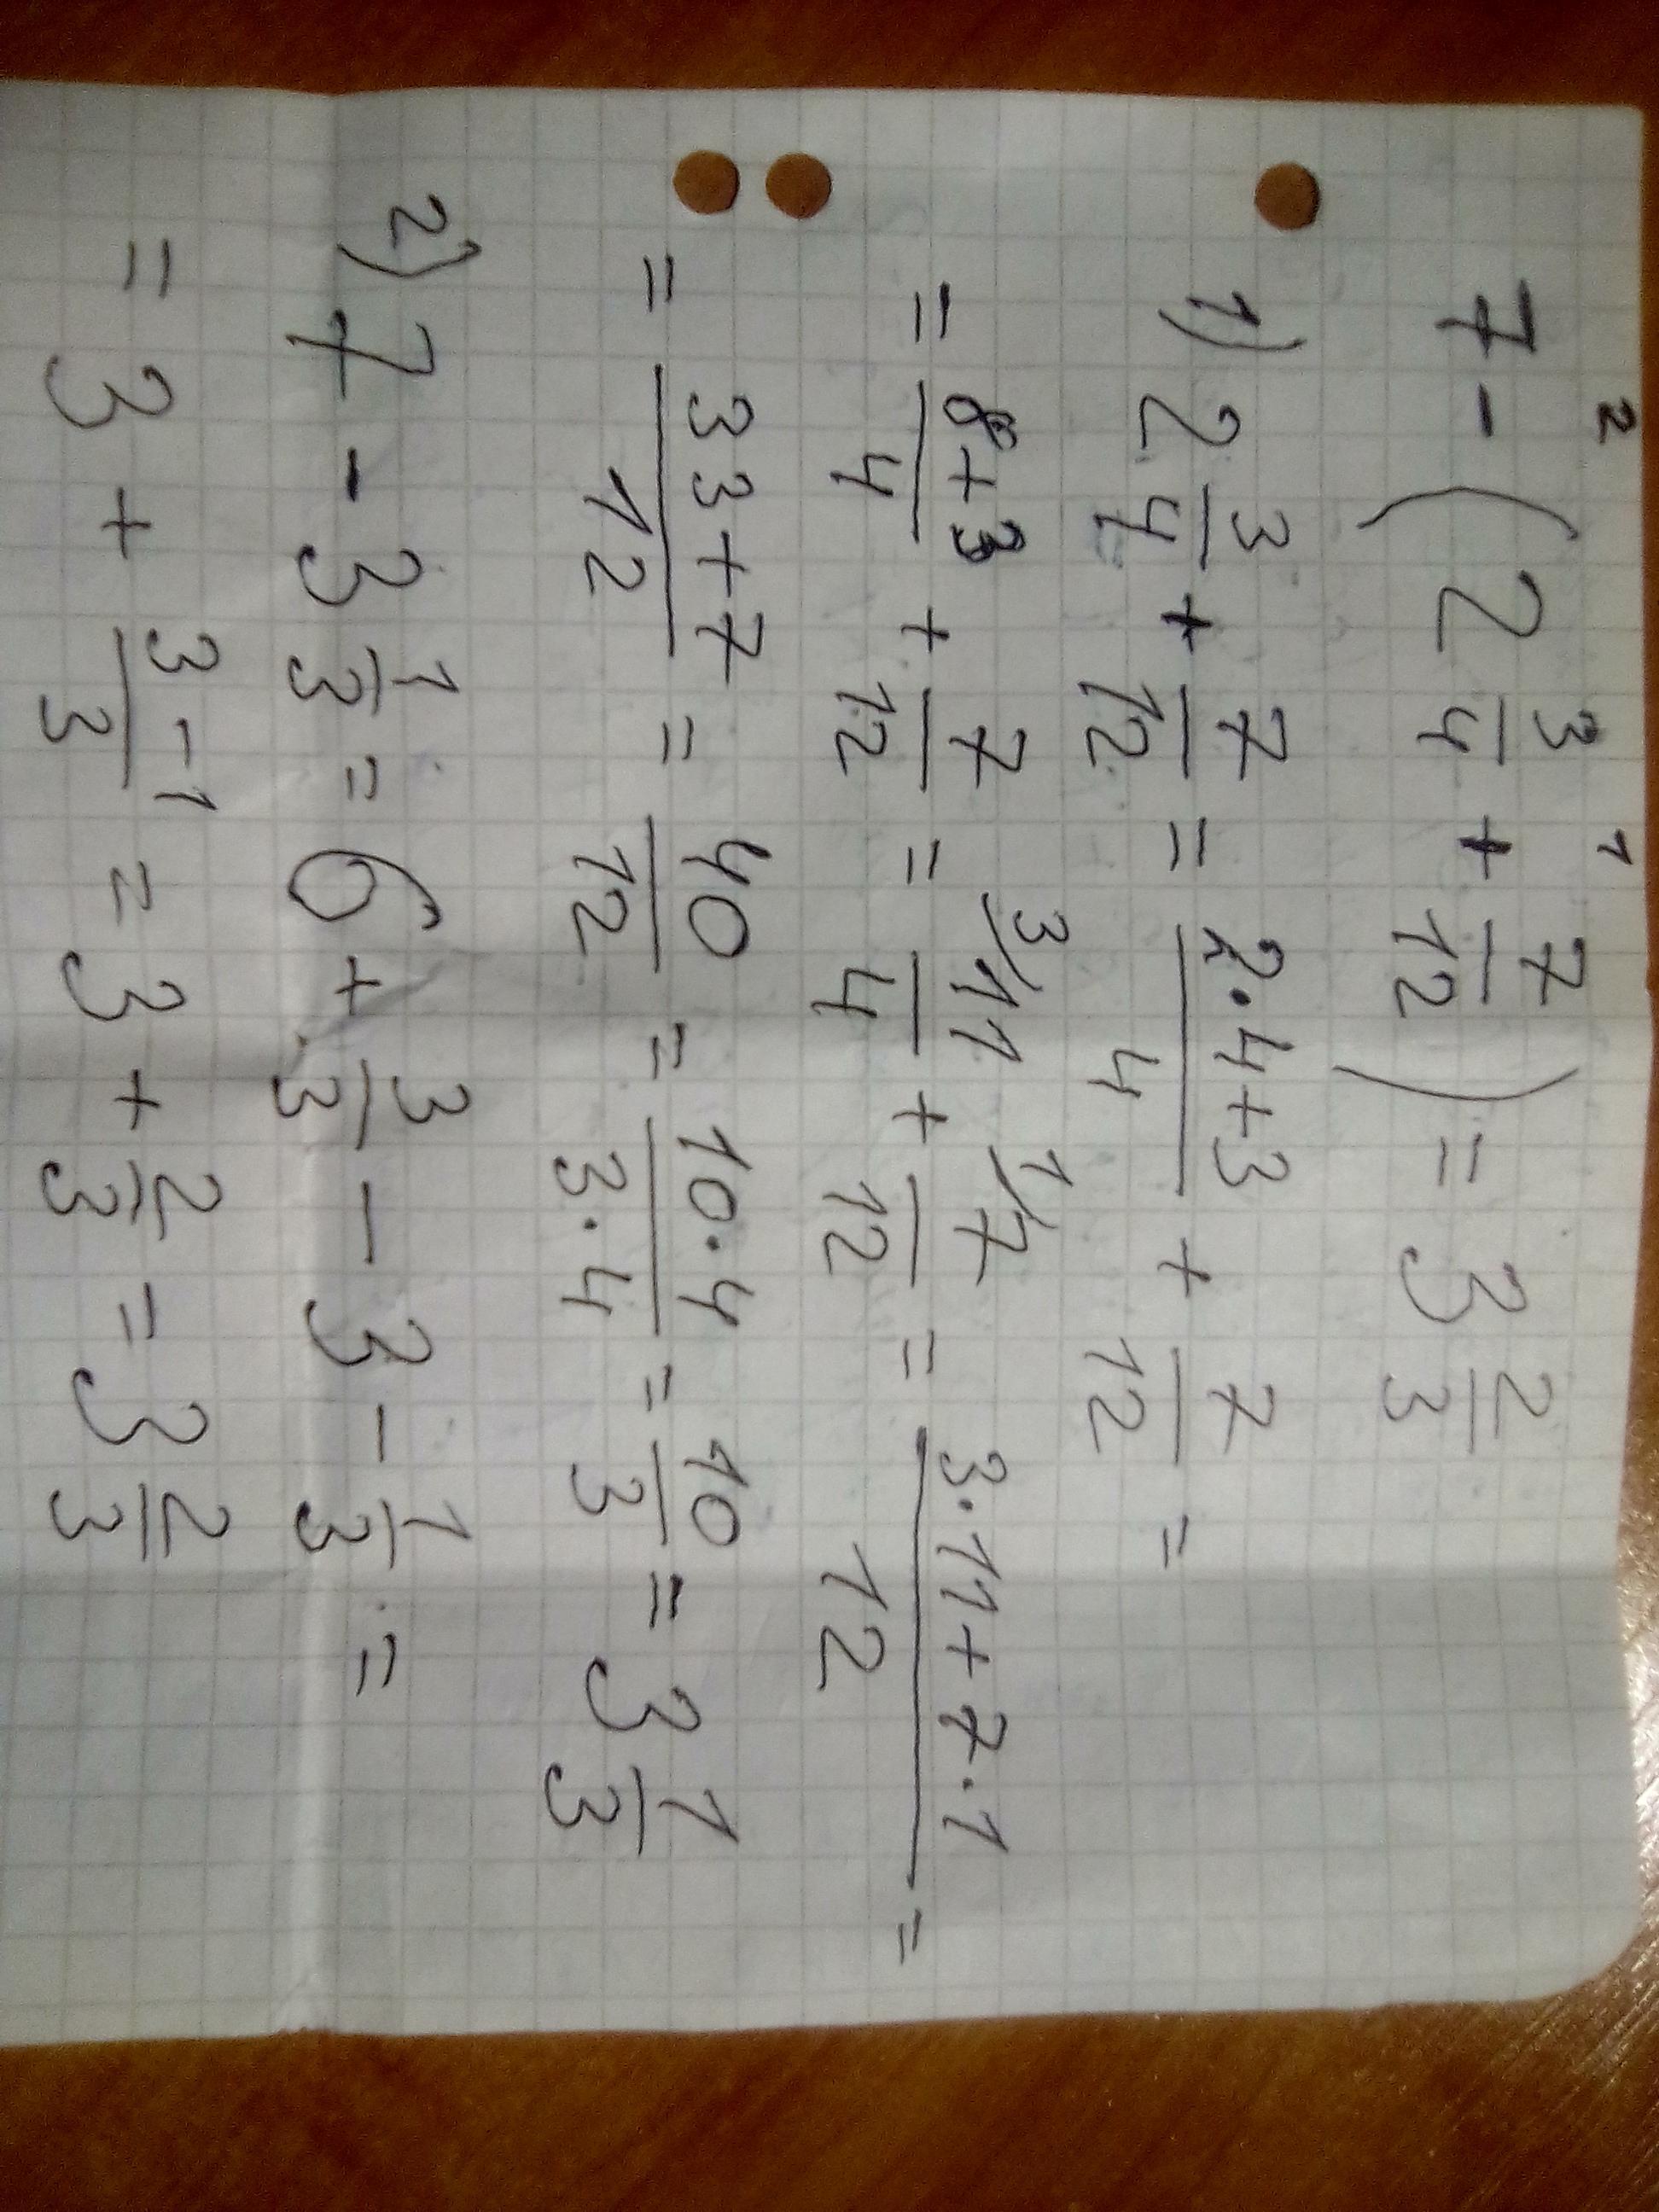 2 1
7 - (2 3/4 + 7/12) = 3 2/3
1) 2 3/4 + 7/12 = (2·4+3)/4 + 7/12 =
= (8+3)/4 + 7/12 = 3/ 11/4 + 1/ 7/12 = (3·11+7·1)/12 =
= (33+7)/12 = 40/12 = (10·4)/(3·4) = 10/3 = 3 1/3
2) 7 - 3 1/3 = 6 + 3/3 - 3 - 1/3 =
= 3 + (3-1)/3 = 3 + 2/3 = 3 2/3